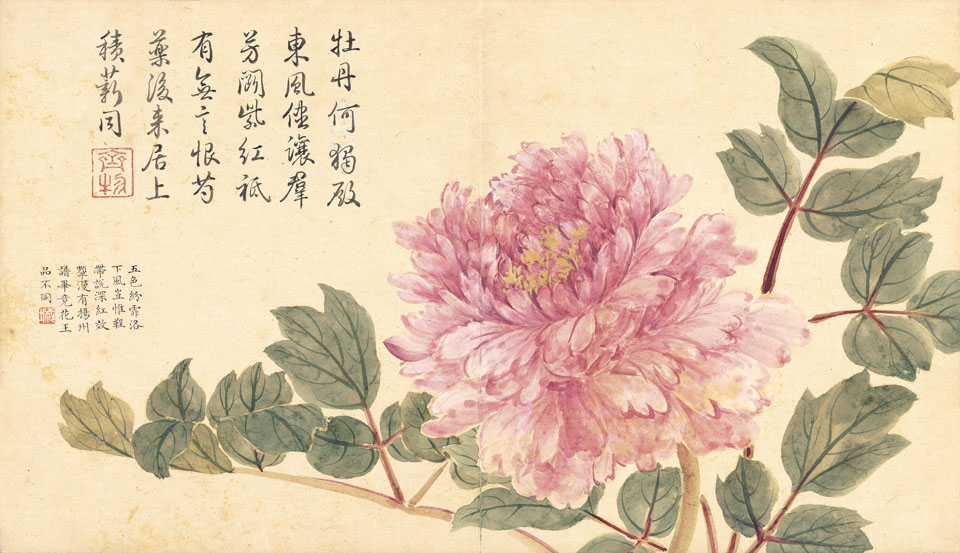 牡丹何獨殿
東風儘讓羣
芳闘紫紅祗
有無言恨芍
藥後来居上
積薪同
齊物
五色紛霏洛
下風豈惟鞓
帶說深紅效
顰漫有揚州
譜畢竟花王
品不同